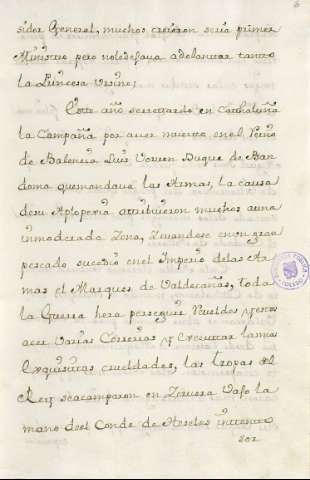 6
sidor General, muchos creieron seria primer
Ministro pero noledejava adelantar tanto
la Princesa Ursino;
Este año seretardo en Cathaluña
la Campaña por aver muerto en el Reino
de Balencia Luis Duque de Ban
doma quemandava las Armas, la causa
desu Aplopexia atribuieron muchos auna
inmoderada Zena, Zevandose en un gran
pescado sucedió en el Imperio delas Ar
mas el Marques de Valdecañas, toda
la Guerra hera perseguir Reveldes
acer varias Correrias y executar lamas
Exquisitas crueldades, las tropas del
Rey seacamparon en Zervera vajo la
mano del Conde de
sor